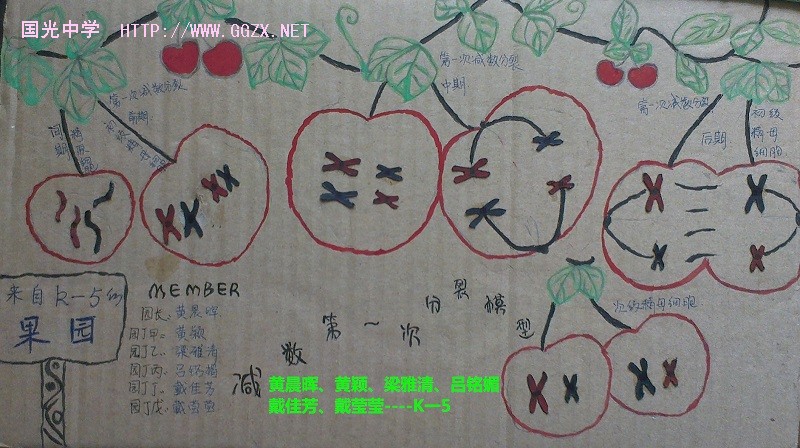 国光中学 HTTP://WWW.GGZX.NET
第一次减数分裂
前期
第一次减数分裂
中期
第一次减数分裂
后期
初级
精母
细胞
间期
来自K-5的
果园
MEMBER
园长:黄晨晖
园丁甲:黄颖
园丁乙:梁雅清
园丁丙:吕铭媚
园丁丁:戴佳芳
园丁戊:戴莹莹
减数第一次分裂模型
次级精母细胞
黄晨晖、黄颖、梁雅清、吕铭媚
戴佳芳、戴莹莹----K—5